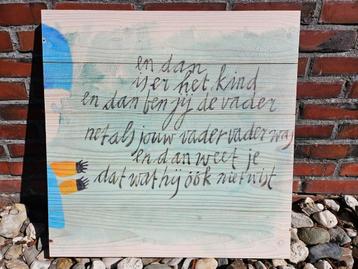 en dan
is er het kind
en dan ben jij de vader
net als jouw vader vader was
en dan weet je
dat wat hij óók niet wist